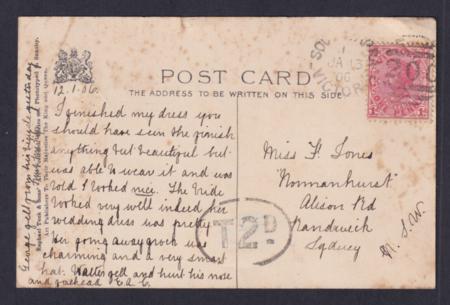 POST CARD
THE ADDRESS TO BE WRITTEN ON THIS SIDE
12.1.06.
I finished my dress you
should have seen the finish
anything but beautiful but
was able to wear it and was
told I looked nice. The Bride
looked very well indeed her
wedding dress was pretty
Her going away gown was
charming and a very smart
hat. Walter fell and hurt his nose
and forehead E.A.C.
George fell from his bicycle yesterday
Raphael Tuck & Sons'
Art Publishers to Their Majesties the King and Queen.
JA 13
06
VICTORIA
T2D
Miss F. Jones
"Normanhurst"
Alison Rd
Randwick
Sydney
N.S.W.